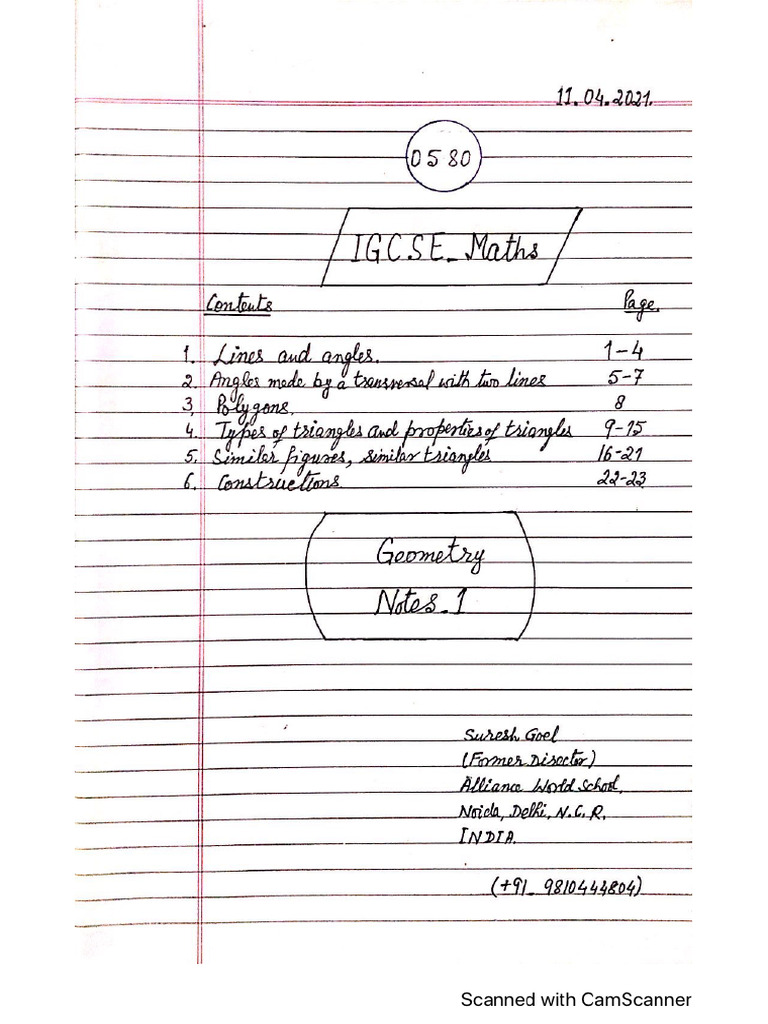 11.04.2021.
0580
IGCSE_Maths
Contents Page.
1. Lines and angles. 1-4
2. Angles made by a transversal with two lines 5-7
3. Polygons. 8
4. Types of triangles and properties of triangles 9-15
5. Similar figures, similar triangles 16-21
6. Constructions. 22-23
Geometry
Notes_1
Suresh Goel
(Former Director)
Alliance World School,
Noida, Delhi, N.C.R.
INDIA.
(+91_ 9810444804)
Scanned with CamScanner